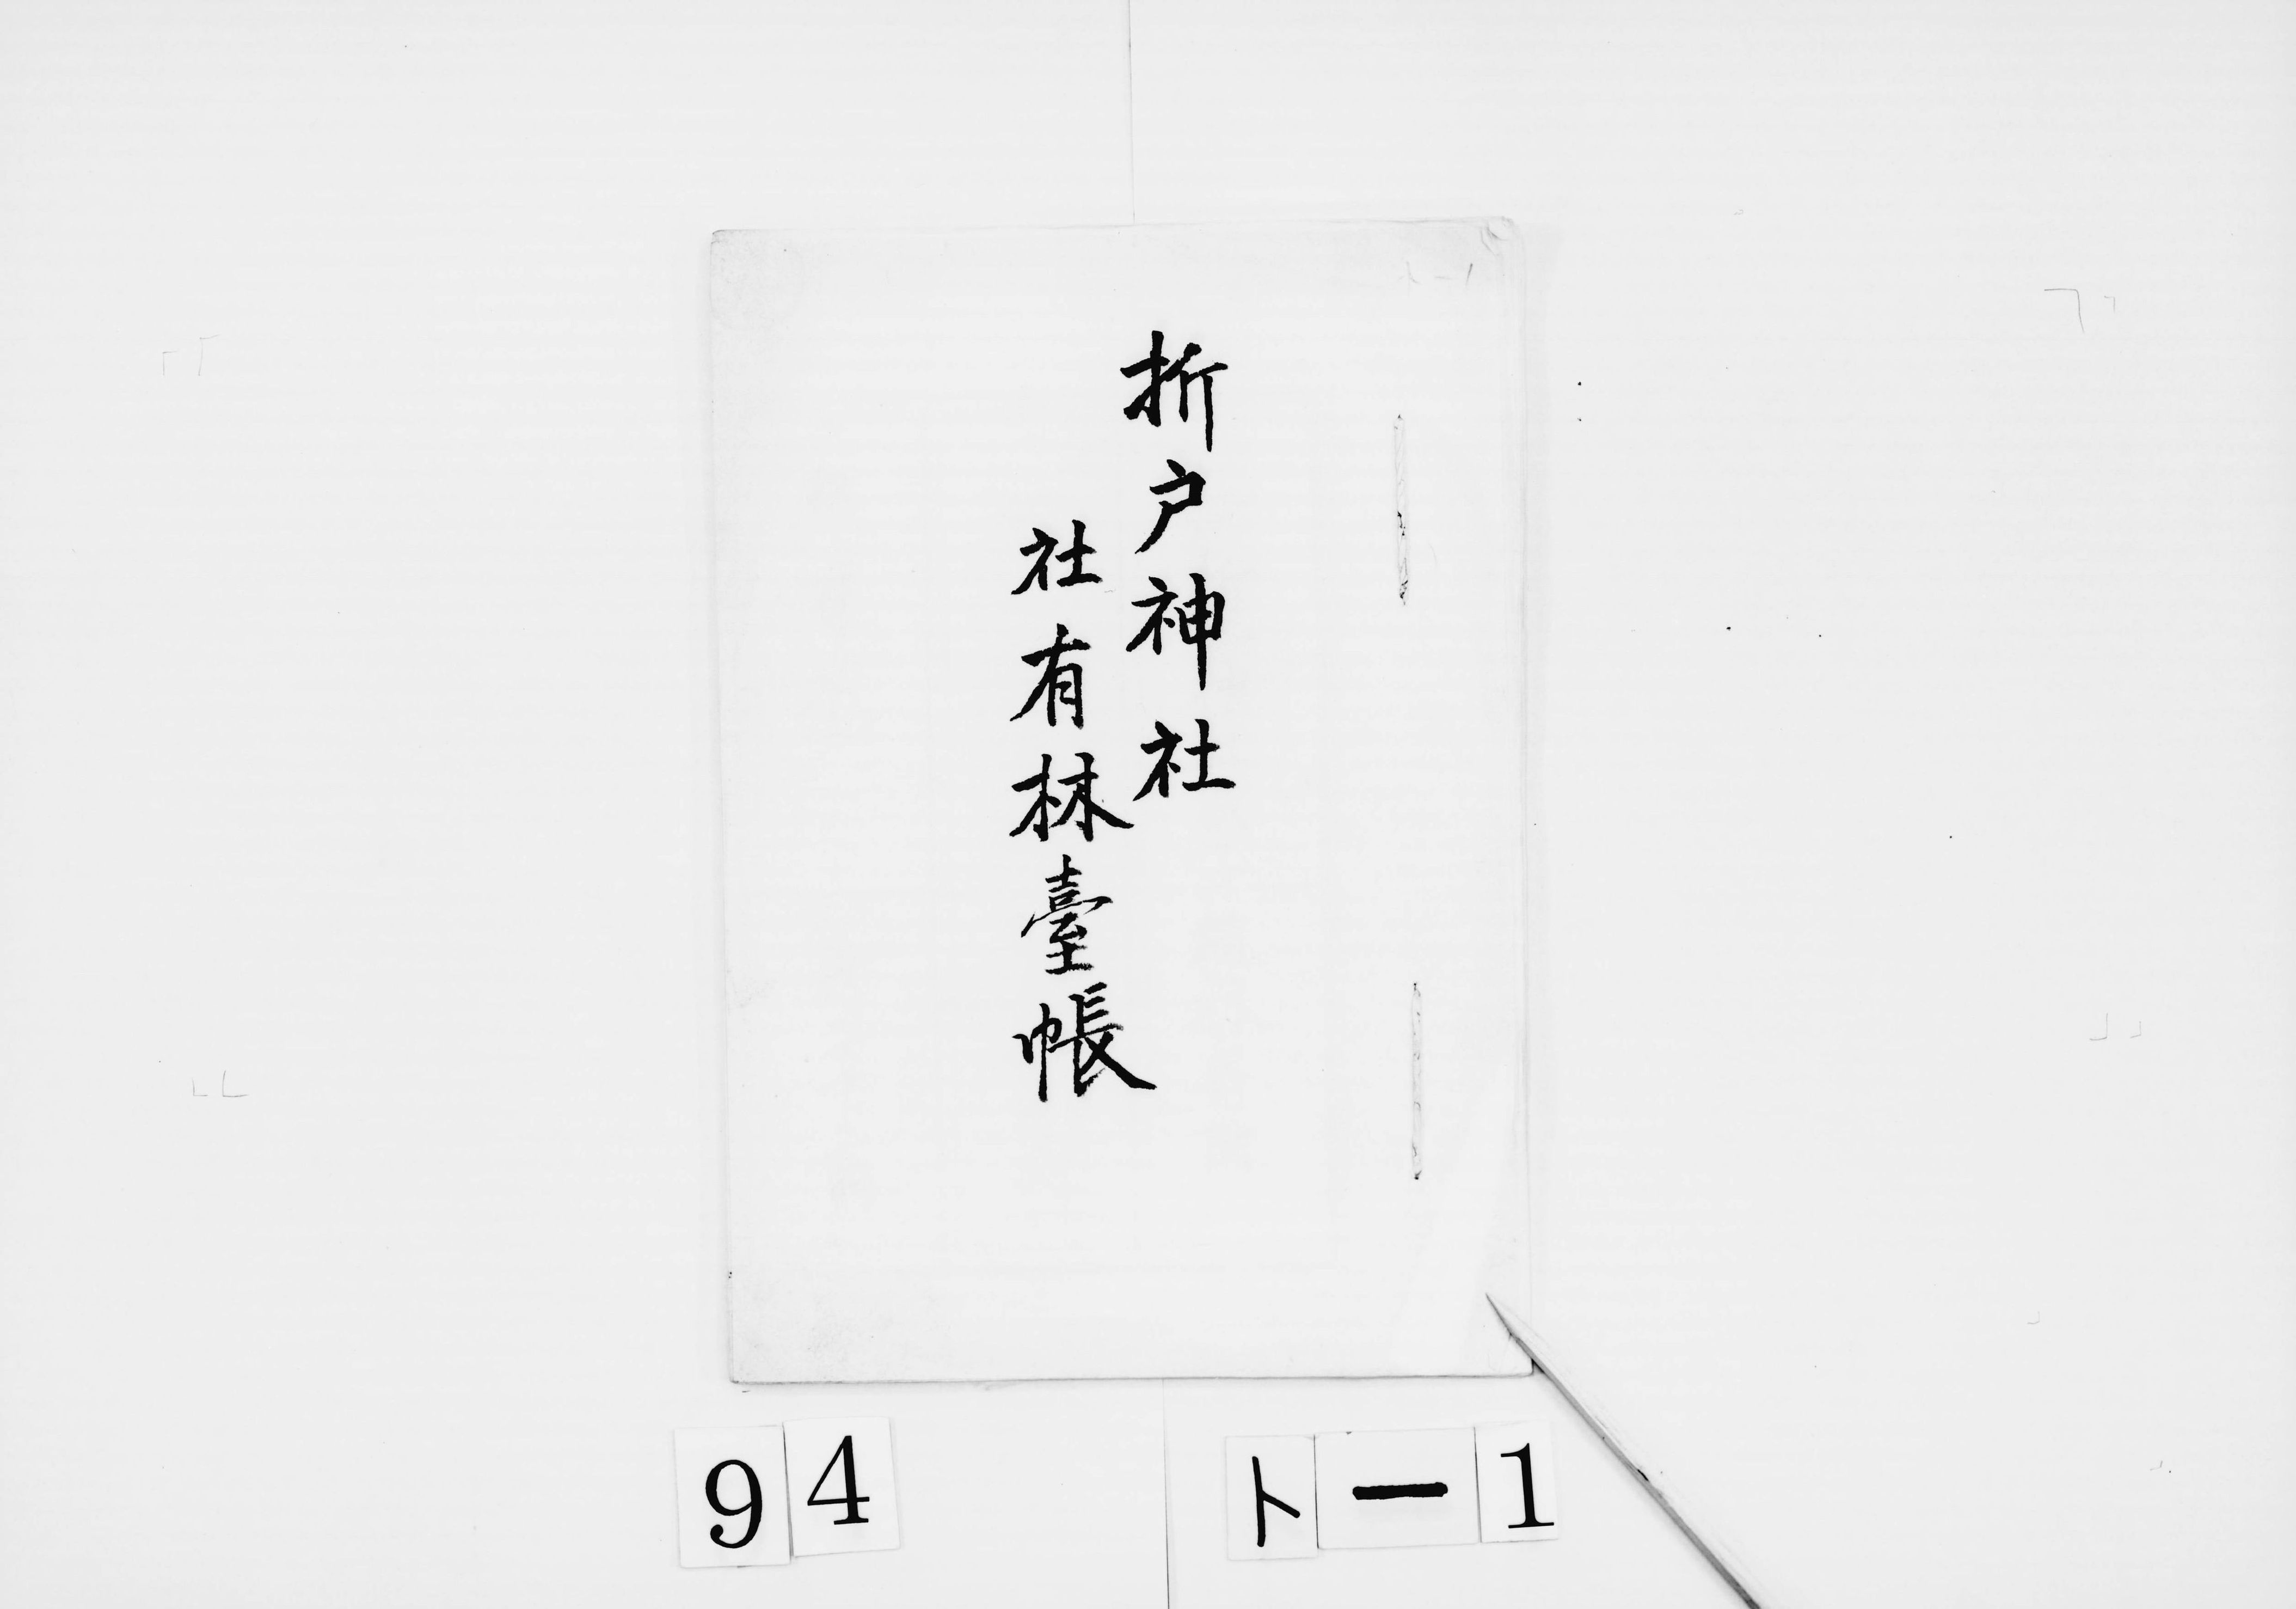 ト-1
折戸神社
社有林臺帳
94
ト-1